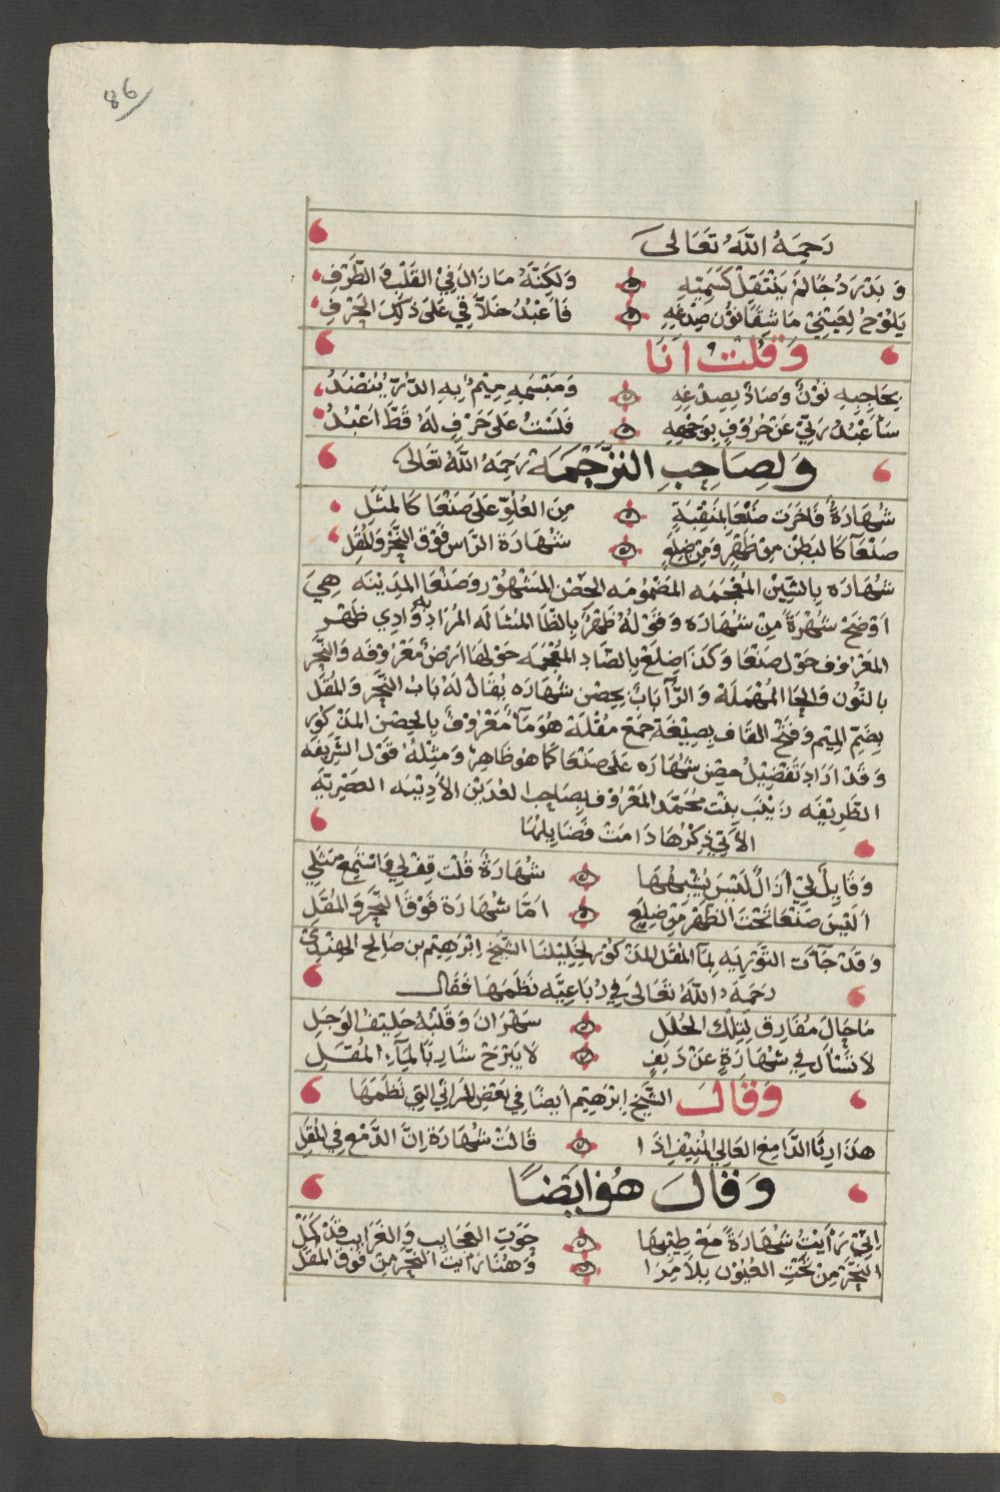 86
رحمه الله تعالى
وبدر دجا لم ينتقل كسميه ولكنه ما زال في القلب والطرف
يلوح لعيني ما شقا نون صدغه فاعبد خلاقي على ذلك الحرف
وقلت انا
بحاجبه نون وصاد بصدغه ومبسمه ميم به الدر ينضد
ساعبد ربي عن حروف بوجهه فلست على حرف له قط اعبد
ولصاحب الترجمة رحمه الله تعالى
شهارة فاخرت صنعا بمنقبة من العلو على صنعا كالمثل
صنعا كالبطن من ظهر ومن ضلع شهارة الراس فوق النحر والمقل
شهاره بالشين المعجمه المضمومه الحصن المشهور وصنعا المدينه هي
اوضح شهرة من شهاره وقوله ظهر بالظا المشاله المراد به وادي ظهر
المعروف حول صنعا وكذا ضلع بالضاد المعجمه حولها ارض معروفه والنحر
بالنون والحا المهملة والرآ باب بحصن شهاره يقال له باب النحر والمقل
بضم الميم وفتح القاف بصيغة جمع مقلة هو مآ معروف بالحصن المذكور
وقد اراد تفضيل حصن شهاره على صنعا كما هو ظاهر ومثله قول الشريفه
الظريفه زينب بنت محمد المعروف بصاحب الادبيه العصريه
الآتي ذكرها دامت فضايلها
وقايل لي ازال ليس يشبهها شهارة قلت قف لي فاستمع مثلي
اليس صنعا تحت الظهر مع ضلع اما شهارة فوق النحر والمقل
وقد جآت التوريه بمآ المقل المذكور لخليلنا الشيخ ابرهيم بن صالح الهندي
رحمه الله تعالى في رباعيه نظمها فقال
ما حال مفارق لتلك الحلل سهران وقلبه حليف الوجل
لا تسأل في شهارة عن دنف لا يبرح شاربا لمآء المقل
وقال الشيخ ابرهيم ايضا في بعض المراثي التي نظمها
هذا رثا الدامغ العالي المنيف اذا قالت شهارة ان الدمع في المقل
وقال هو ايضا
اني رايت شهارة مع طيبها حوت العجايب والغرايب قد كمل
النحر من تحت العيون بلا مرا وهنا رايت النحر من فوق المقل